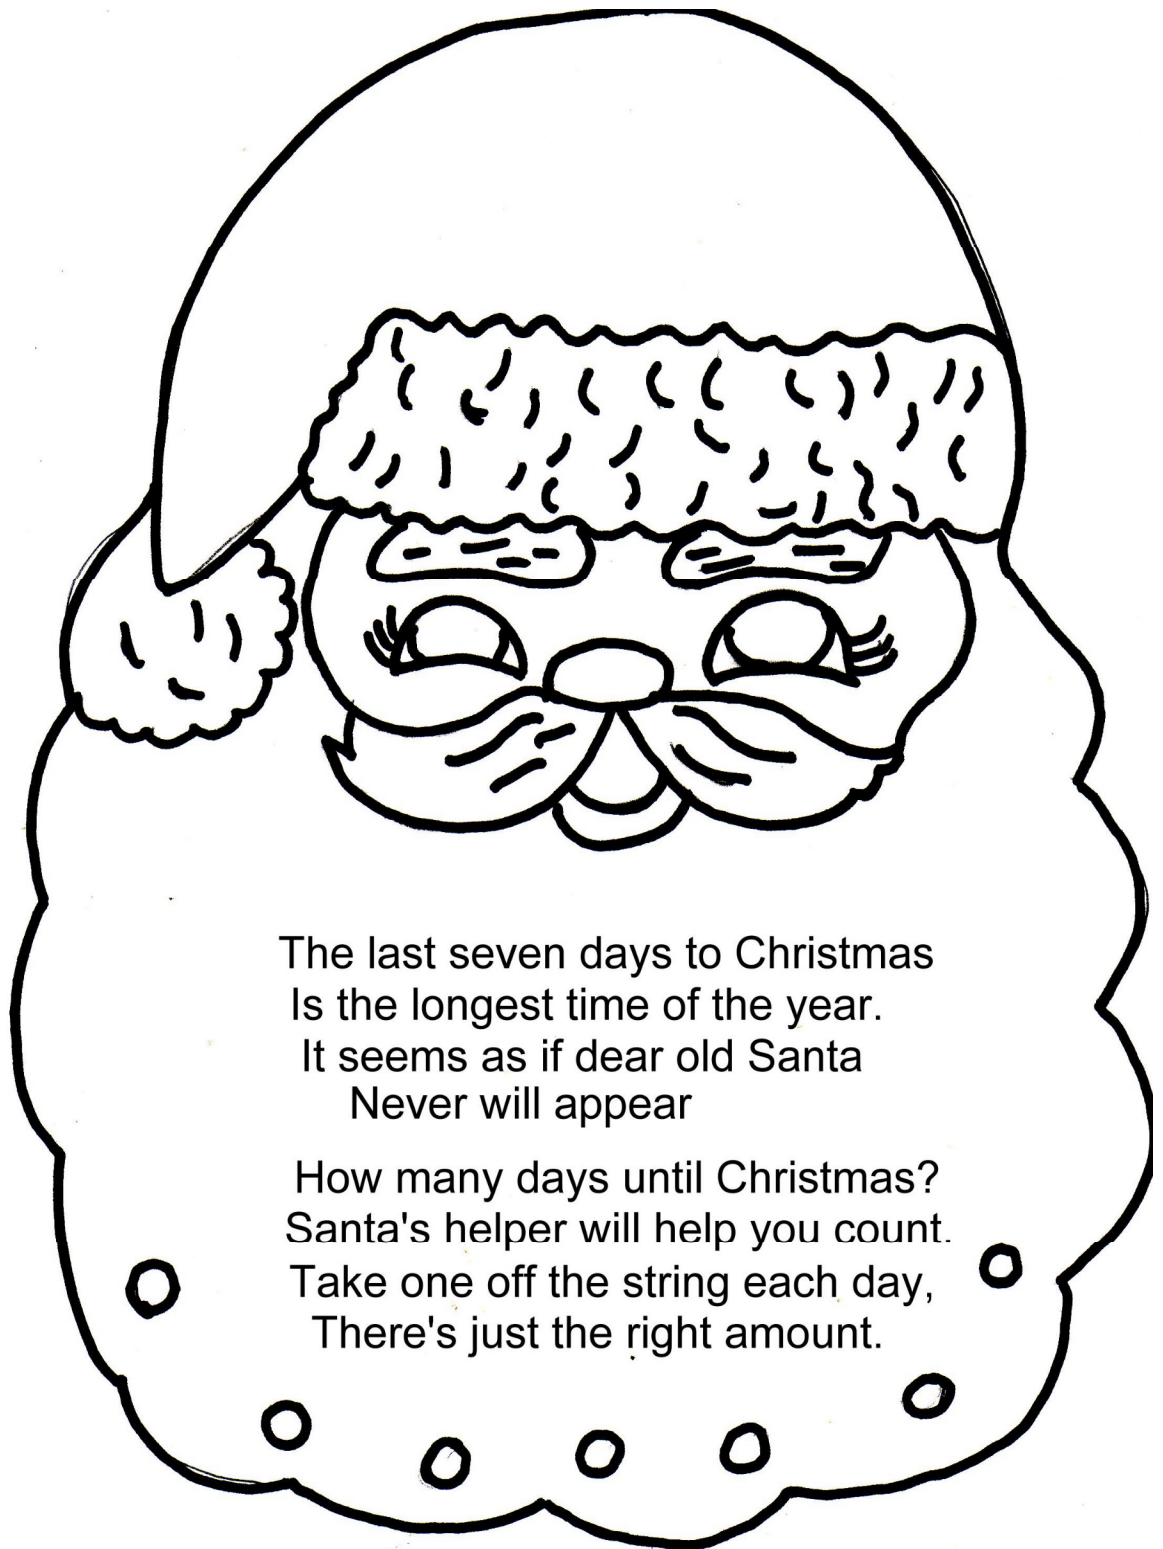 The last seven days to Christmas
Is the longest time of the year.
It seems as if dear old Santa
Never will appear
How many days until Christmas?
Santa's helper will help you count.
Take one off the string each day,
There's just the right amount.